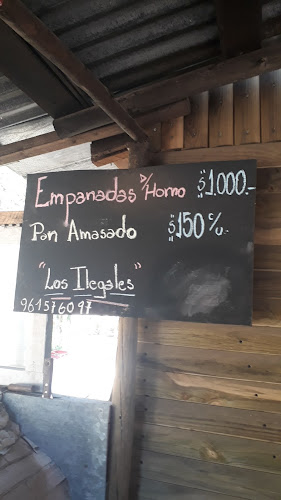 Empanadas D/Horno $1.000.-
Pan Amasado $150 c/u.-
"Los Ilegales"
961576097